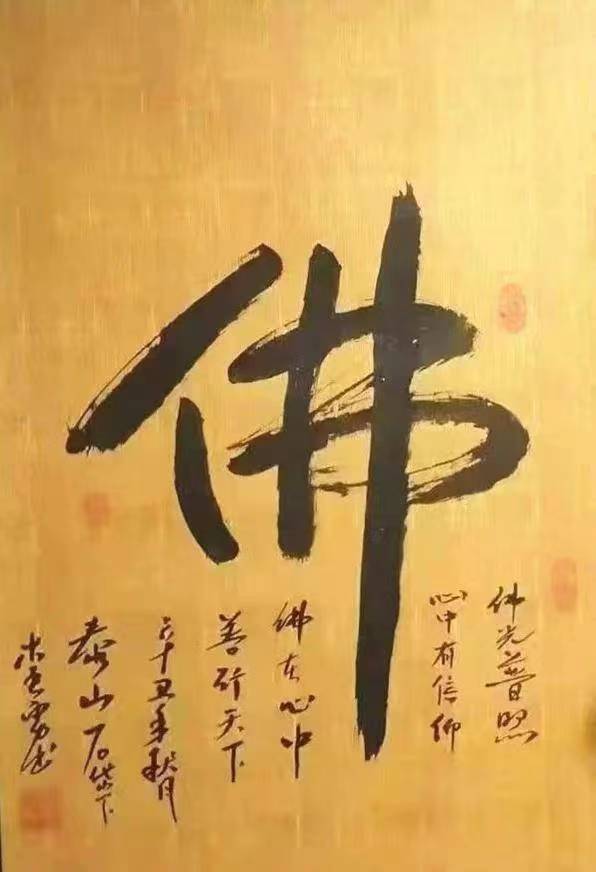 佛
佛光普照
心中有信仰
佛在心中
善行天下
辛丑年秋月
泰山石岱下